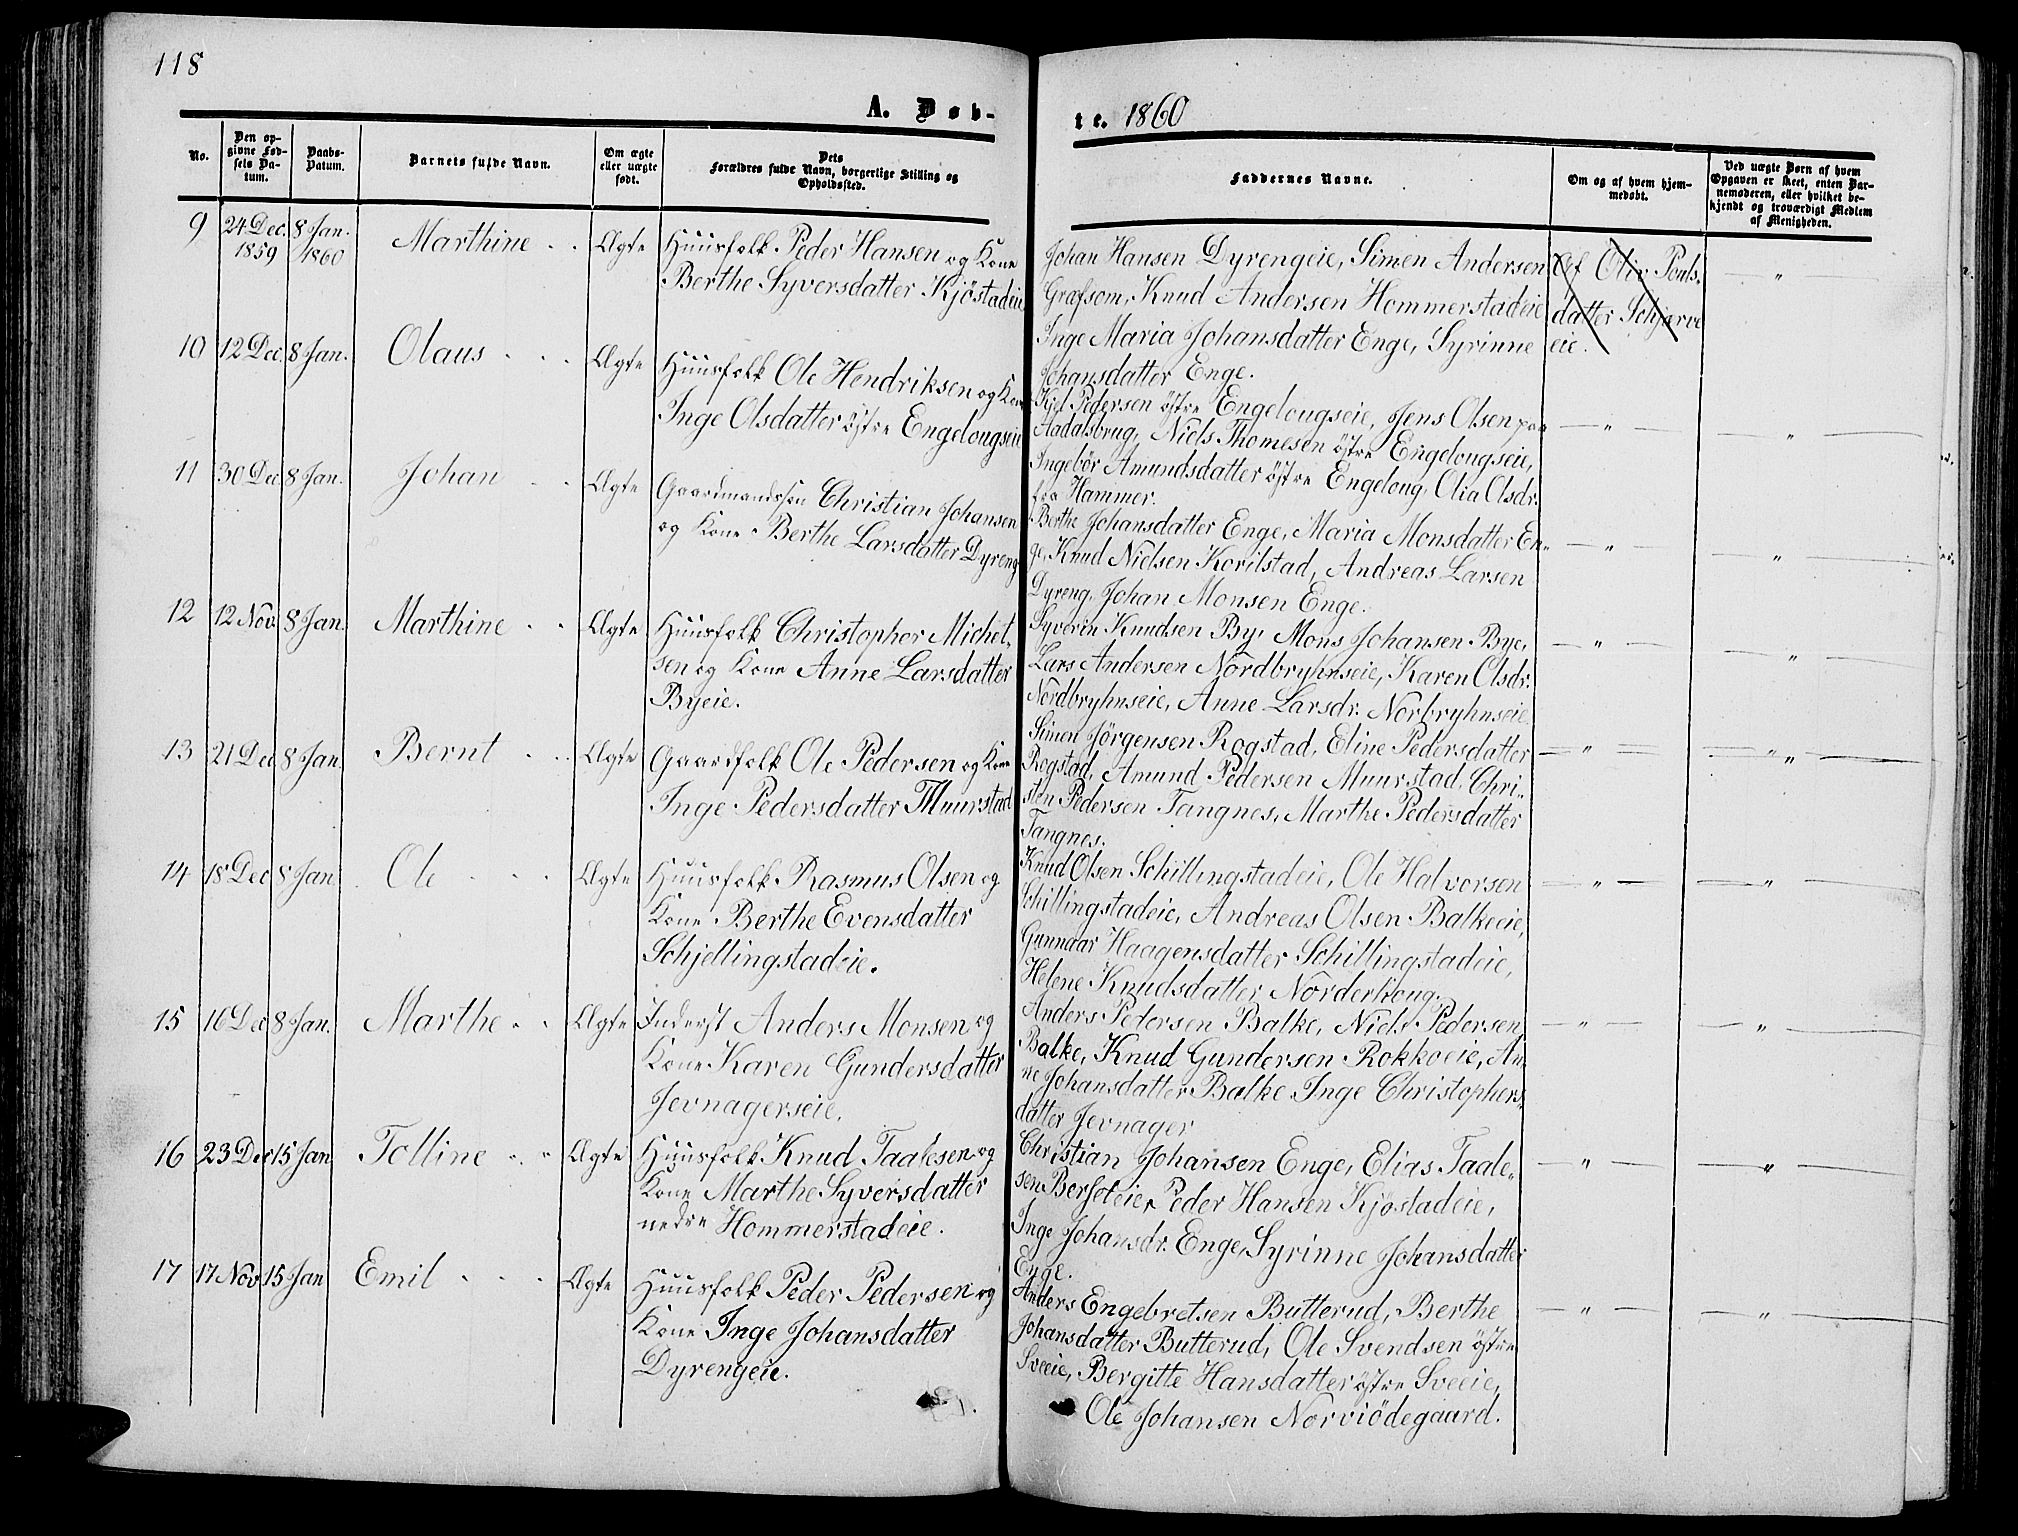 118
A. Døb-
te. 1860
No.
Den op-
givne Fød-
sels Da-
tum.
Daabs-
Datum.
Barnets fulde Navn.
Om ægte
eller uægte
født.
Dets
Forældres fulde Navn, borgerlige Stilling og
Opholdssted.
Faddernes Navne.
Om og af hvem hjem-
medøbt.
Ved uægte Børn af hvem
Opgaven er skeet, enten Bar-
nemoderen, eller hvilket be-
kjendt og troværdigt Medlem
af Menigheden.
9 24 Dec. 1859 8 Jan. 1860 Marthine Ægte
Huusfolk Peder Hansen og Kone
Berthe Syversdatter Kjöstadeie
Johan Hansen Dyrengeie, Simen Andersen
Græfsom, Knud Andersen Hommerstadeie
Inge Maria Johansdatter Enge, Syrinne
Johansdatter Enge.
Af Olia Pouls-
datter Schjerve
eie.
10 12 Dec 8 Jan. Olaus Ægte
Huusfolk Ole Hendriksen og Kone
Inge Olsdatter östre Engelougseie
Kjel Pedersen östre Engelougseie, Jens Olsen paa
Aadalsbrug, Niels Thomesen östre Engelougseie,
Ingebör Amundsdatter östre Engeloug, Olia Olsdr.
fra Hammer.
11 30 Dec 8 Jan. Johan Ægte
Gaardmandssön Christian Johansen
og Kone Berthe Larsdatter Dyreng
Berthe Johansdatter Enge, Maria Monsdatter En-
ge, Knud Nielsen Korilstad, Andreas Larsen
Dyreng, Johan Monsen Enge.
12 12 Nov. 8 Jan. Marthine Ægte
Huusfolk Christopher Michel-
sen og Kone Anne Larsdatter
Byeie.
Syverin Knudsen By, Mons Johansen Bye,
Lars Andersen Nordbryhnseie, Karen Olsdr.
Nordbryhnseie, Anne Larsdr. Norbryhnseie.
13 21 Dec 8 Jan. Bernt Ægte
Gaardfolk Ole Pedersen og Kone
Inge Pedersdatter Muurstad
Simon Jörgensen Rogstad, Eline Pedersdatter
Rogstad, Amund Pedersen Muurstad, Chri-
sten Pedersen Tangnes, Marthe Pedersdatter
Tangnes.
14 18 Dec 8 Jan. Ole Ægte
Huusfolk Rasmus Olsen og
Kone Berthe Evensdatter
Schjellingstadeie.
Knud Olsen Schillingstadeie, Ole Halvorsen
Schillingstadeie, Andreas Olsen Balkeeie,
Gunnaar Haagensdatter Schillingstadeie,
Helene Knudsdatter Norderhoug.
15 16 Dec 8 Jan. Marthe Ægte
Inderst Anders Monsen og
Kone Karen Gundersdatter
Jevnagerseie.
Anders Pedersen Balke, Niels Pedersen
Balke, Knud Gundersen Rokkoeie, An-
ne Johansdatter Balke, Inge Christophers-
datter Jevnager
16 23 Dec 15 Jan Tolline Ægte
Huusfolk Knud Taalesen og
Kone Marthe Syversdatter
nedre Hommerstadeie.
Christian Johansen Enge, Elias Taale-
sen Berseteie, Peder Hansen Kjöstadeie,
Inge Johansdr. Enge, Syrinne Johansdatter
Enge.
17 17 Nov. 15 Jan Emil Ægte
Huusfolk Peder Pedersen og
Kone Inge Johansdatter
Dyrengeie.
Anders Engebretsen Butterud, Berthe
Johansdatter Butterud, Ole Svendsen östre
Sveeie, Bergitte Hansdatter östre Sveeie,
Ole Johansen Norviödegaard.